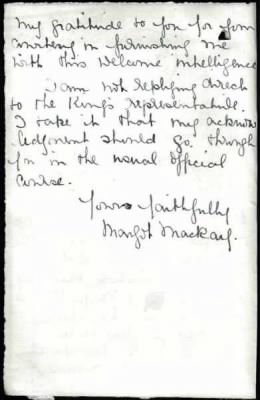 my gratitude to you for your
courtesy in furnishing me
with this welcome intelligence
I am not replying direct
to the King's representative.
I take it that my acknow
ledgment should go through
you in the usual official
course.
Yours faithfully
Margot Mackay.